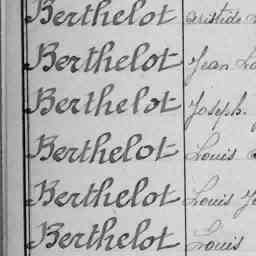 Berthelot aristide
Berthelot Jean
Berthelot Joseph.
Berthelot Louis
Berthelot Louis
Berthelot Louis